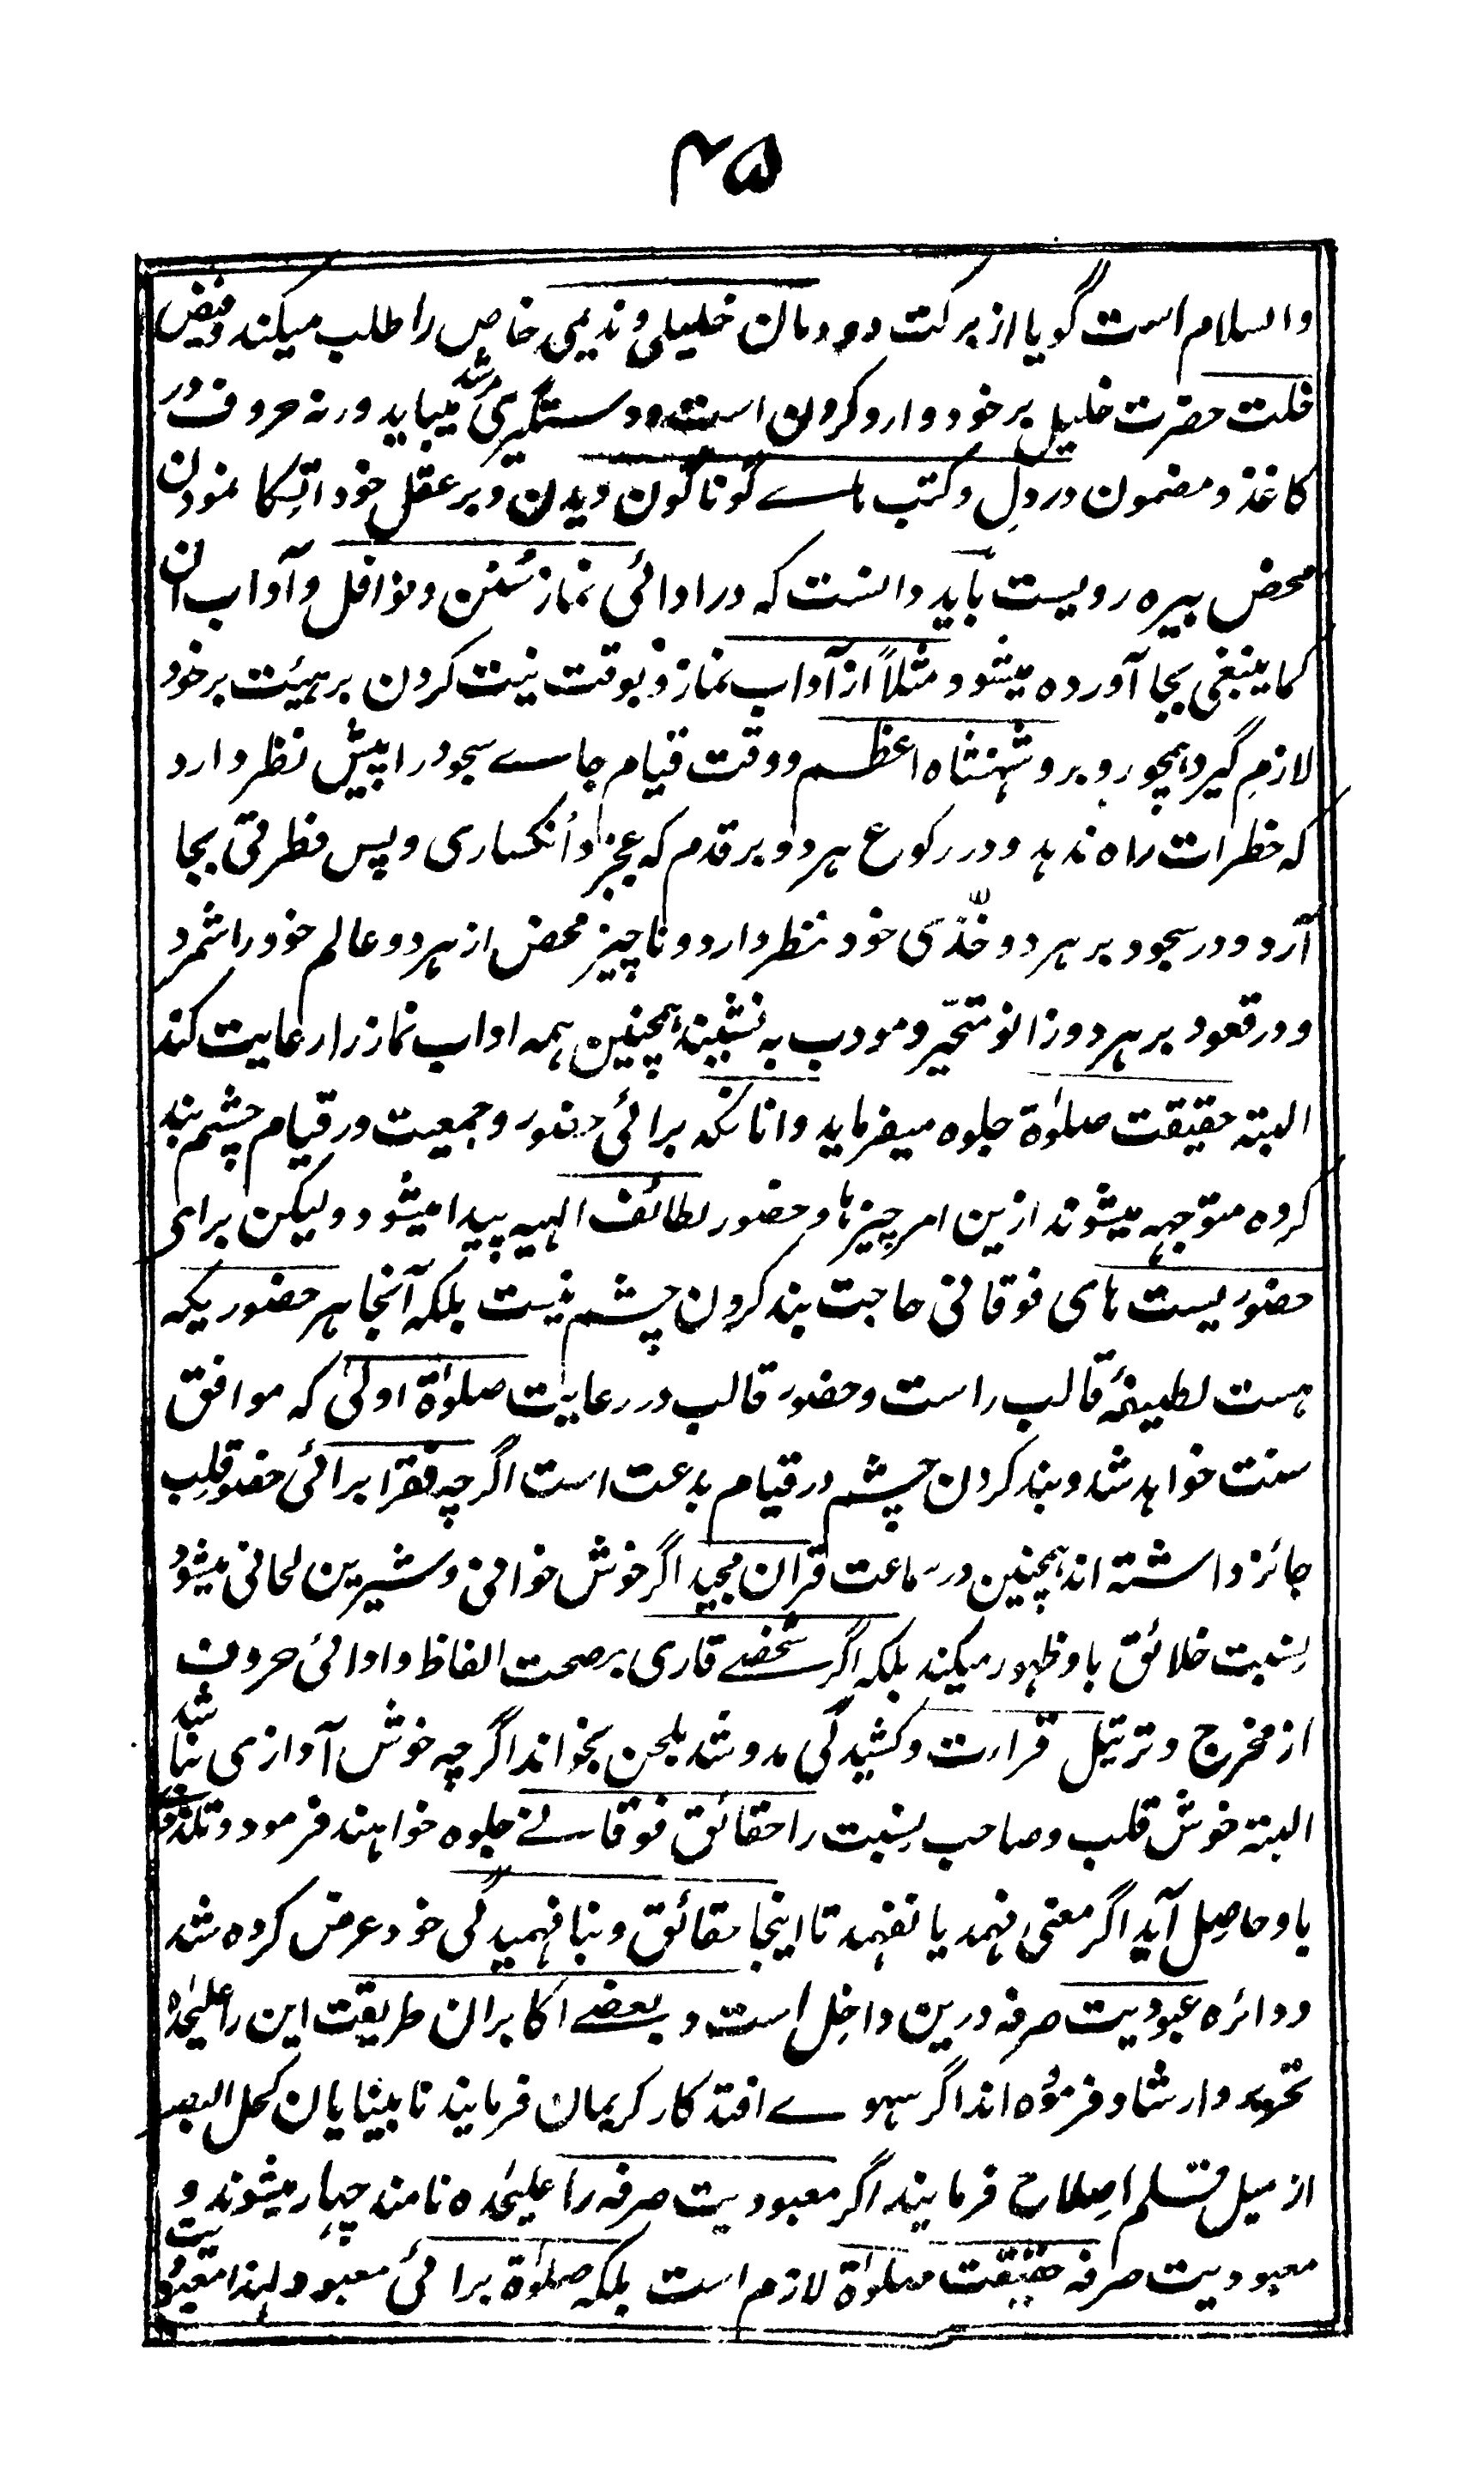 ۴۵
والسلام است گویا از برکت دودمان خلیلی و ندیمی خاص را طلب میکند و فیض
خلت حضرت خلیل بر خود وارد کردن است و دستگیری مرشد میباید ورنه حروف در
کاغذ و مضمون در دل و کتب هاے گوناگون دیدن و بر عقل خود اتکا نمودن
محض بیره رویست باید دانست که در ادائی نماز سُنن و نوافل و آداب آن
کما ینبغی بجا آورده میشود مثلاً از آداب نماز و بوقت نیت کردن بر هیئت بر خود
لازم گیرد همچو روبرو شهنشاه اعظم و وقت قیام جاے سجود را پیش نظر دارد
که خطرات راه ندهد و در رکوع هر دو بر قدم که عجز و اُنکساری و پس فطرتی بجا
آرد و در سجود بر هر دو خدّی خود نظر دارد و ناچیز محض از هر دو عالم خود را شمرد
و در قعود بر هر دو زانو متحیّر و مودب به نشیند همچنین همه اداب نماز را رعایت کند
البته حقیقت صلوٰة جلوه میفرماید و انانکه برائی حضور و جمعیت در قیام چشم بند
کرده متوجهه میشوند ازین امر چیزها و حضور لطائف الهیه پیدا میشود ولیکن برای
حضور یست های فوقانی حاجت بند کردن چشم نیست بلکه آنجا هر حضوریکه
هست لطیفهٔ قالب راست و حضور قالب در رعایت صلوٰة اولیٰ که موافق
سنت خواهد شد و بند کردن چشم در قیام بدعت است اگرچه فقرا برائی حضور قلب
جائز داشته اند همچنین در سماعت قران مجید اگر خوش خوانی و شیرین لحانی میشود
نسبت خلائق باو ظهور میکند بلکه اگر شخصے قاری بر صحت الفاظ و ادائی حروف
از مخرج و ترتیل قرارت و کشیدگی مد و شد بلحن بخواند اگرچه خوش آوازی نباشد
البته خوش قلب و صاحب نسبت را حقائق فوقانے جلوه خواهند فرمود و تلذذ
باو حاصل آید اگر معنی فهمد یا نفهمد تا اینجا حقائق و بنا فهمیدگی خود عرض کرده شد
و دائره عبودیت صرفه درین داخل است و بعضے اکابران طریقت این را علیحٰده
تحریر و ارشاد فرموده اند اگر سهوے افتد کار کریمان فرمایند نابینایان کحل البصر
از میل قلم اصلاح فرمایند اگر معبودیت صرفه را علیحٰده نامند چهار میشوند و
معبودیت صرفه حقیقت صلوٰة لازم است بلکه صلوٰة برائی معبود لهذا معبودیت